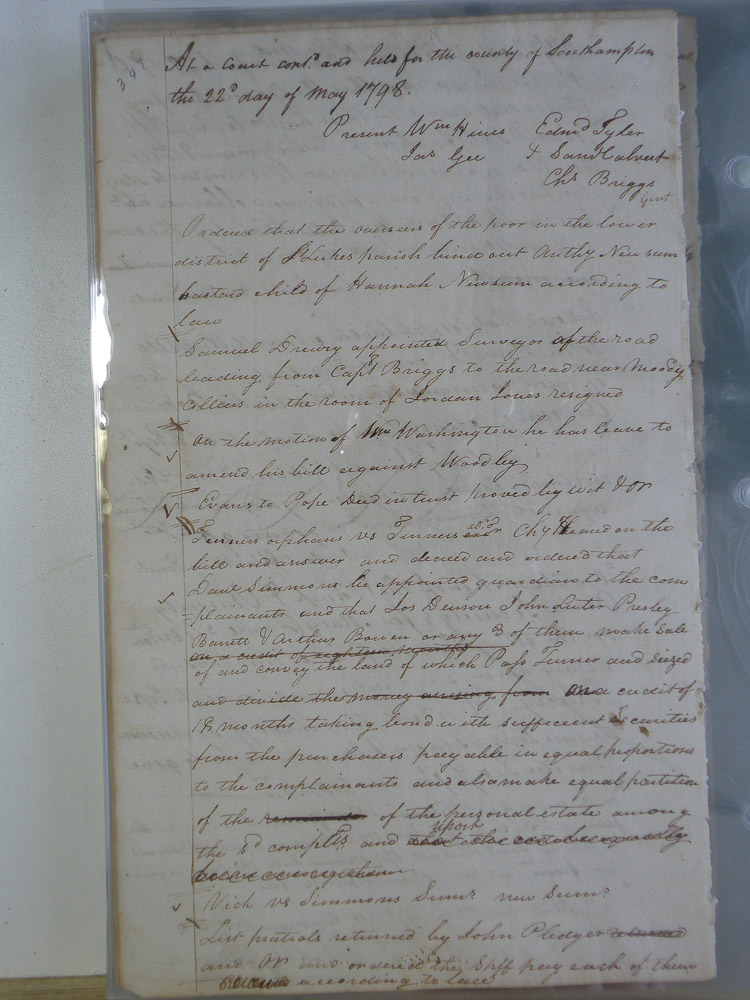 At a court cont.d and held for the county of Southampton
the 22.d day of May 1798.
Present Wm Hines Edmd Tyler
Jas Gee & Saml Calvert
Chs Briggs
Gent
Ordered that the overseers of the poor in the lower
district of St Lukes parish bind out Anthy Newsum
bastard child of Hannah Newsum according to
law
Samuel Drewry appointed Surveyor of the road
leading from Capt Briggs to the road near Moody
Cellars in the room of Jordan Jones resigned
On the motion of Wm Washington he has leave to
amend his bill against Woodley
Evans to Pope Deed in trust proved by wit & OR
Turners orphans vs Turners adr Chy Heard on the
bill and answer and decreed and ordered that
Danl Simmons be appointed guardian to the com
plainants and that Jos Denson John Luter Presley
Barrett & Arthur Bowen or any 3 of them make Sale
on a credit of eighteen months
of and convey the land of which Pass Turner died seized
and divide the money arising from on a credit of
18 months taking bond with sufficient Securities
from the purchasers payable in equal proportions
to the complainants and also make equal partition
of the remainder of the personal estate among
the sd complts and report
Vick vs Simmons Sums new Sums
List patrols returned by John Pledger returned
and OR and ordered the Shff pay each of them
according to law